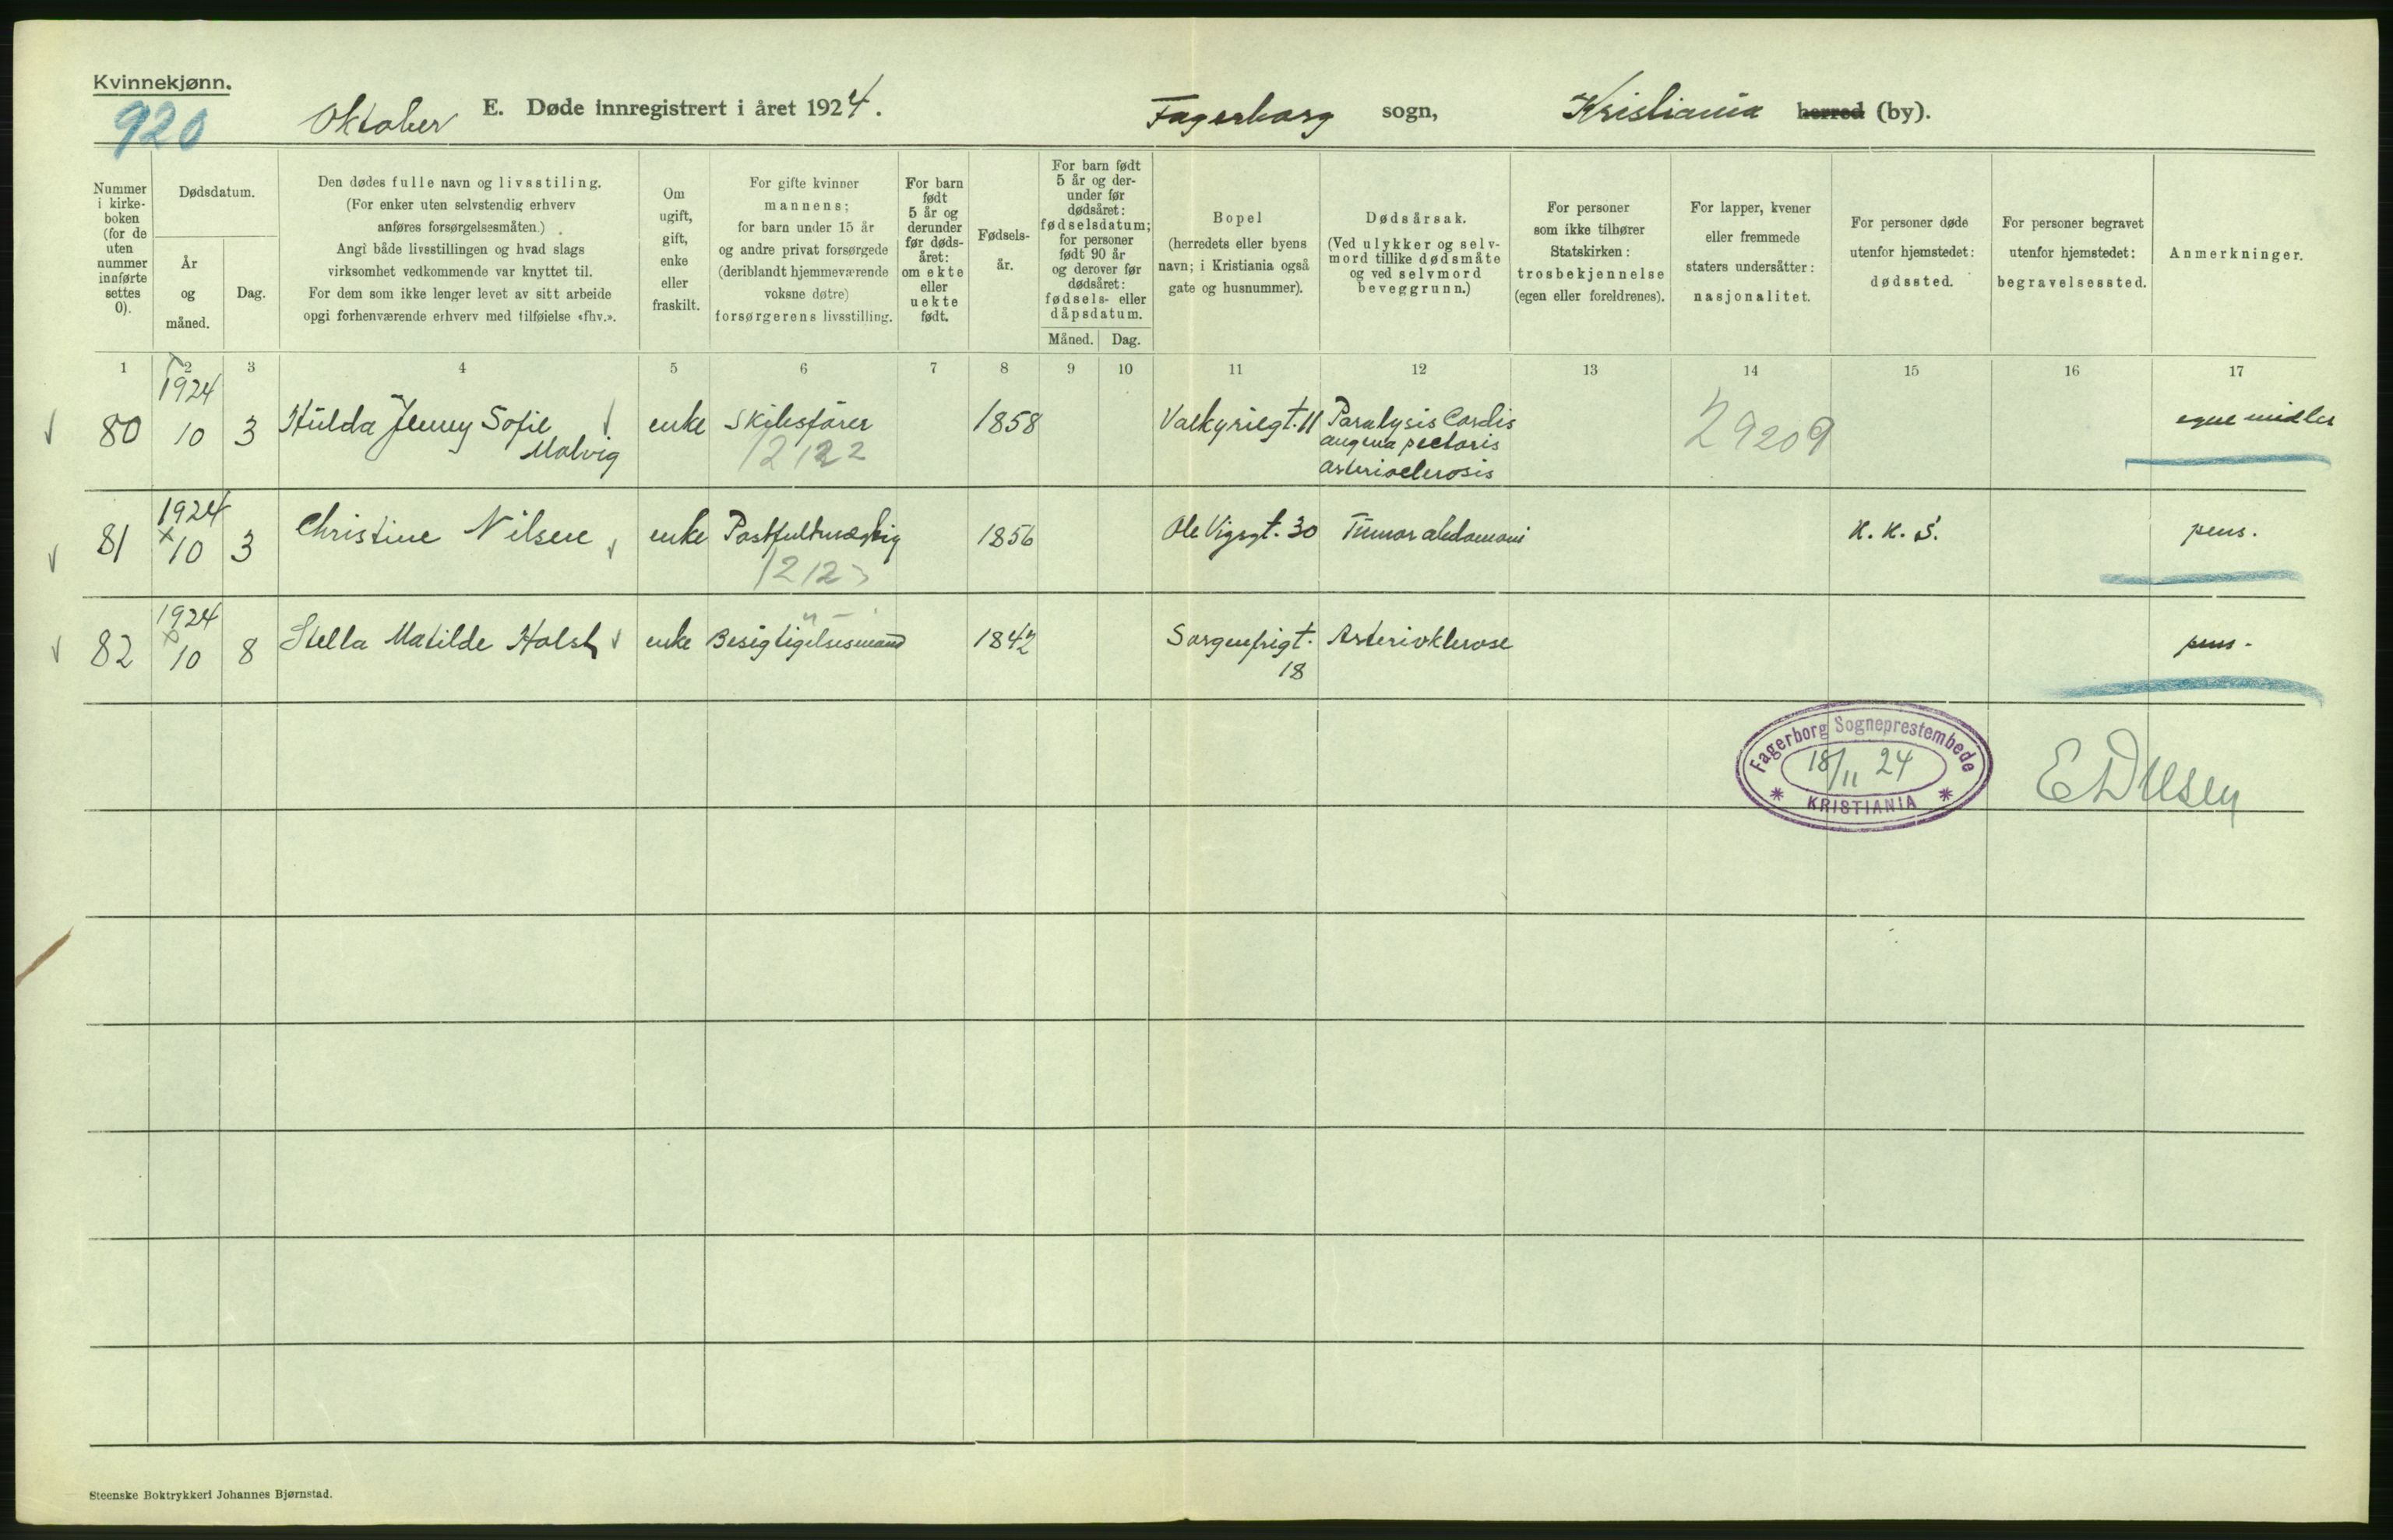 Kvinnekjønn.
920
Oktober E. Døde innregistrert i året 1924. Fagerborg sogn, Kristiania herred (by).
Nummer i kirke- boken (for de uten nummer innførte settes 0).
Dødsdatum.
År og måned.
Dag.
Den dødes fulle navn og livsstiling.
(For enker uten selvstendig erhverv
anføres forsørgelsesmåten.)
Angi både livsstillingen og hvad slags
virksomhet vedkommende var knyttet til.
For dem som ikke lenger levet av sitt arbeide
opgi forhenværende erhverv med tilføielse «fhv.».
Om ugift, gift, enke eller fraskilt.
For gifte kvinner
mannens;
for barn under 15 år
og andre privat forsørgede
(deriblandt hjemmeværende
voksne døtre)
forsørgerens livsstilling.
For barn født 5 år og derunder før døds- året: om ekte eller uekte født.
Fødsels- år.
For barn født 5 år og der- under før dødsåret: fødselsdatum; for personer født 90 år og derover før dødsåret: fødsels- eller dåpsdatum.
Måned. Dag.
Bopel
(herredets eller byens
navn; i Kristiania også
gate og husnummer).
Dødsårsak.
(Ved ulykker og selv-
mord tillike dødsmåte
og ved selvmord
beveggrunn.)
For personer
som ikke tilhører
Statskirken:
trosbekjennelse
(egen eller foreldrenes).
For lapper, kvener
eller fremmede
staters undersåtter:
nasjonalitet.
For personer døde
utenfor hjemstedet:
dødssted.
For personer begravet
utenfor hjemstedet:
begravelsessted.
Anmerkninger.
1 2 3 4 5 6 7 8 9 10 11 12 13 14 15 16 17
1924
80 10 3 Hulda Jenny Sofie Malvig enke Skibsfører 1858 Valkyriegt. 11 Paralysis Cordis egne midler
angina pectoris
arteriosclerosis
12122 29209
1924
81 10 3 Christine Nilsen enke 1856 Ole Vigsgt. 30 Tumor abdomini K. K. S. pens.
1212
1924
82 10 8 Stella Matilde Holst enke Besigtigelsesmand 1842 Sorgenfrigt. 18 Arterioklerose pens.
Fagerborg Sogneprestembede
18/11 24
KRISTIANIA
Steenske Boktrykkeri Johannes Bjørnstad.